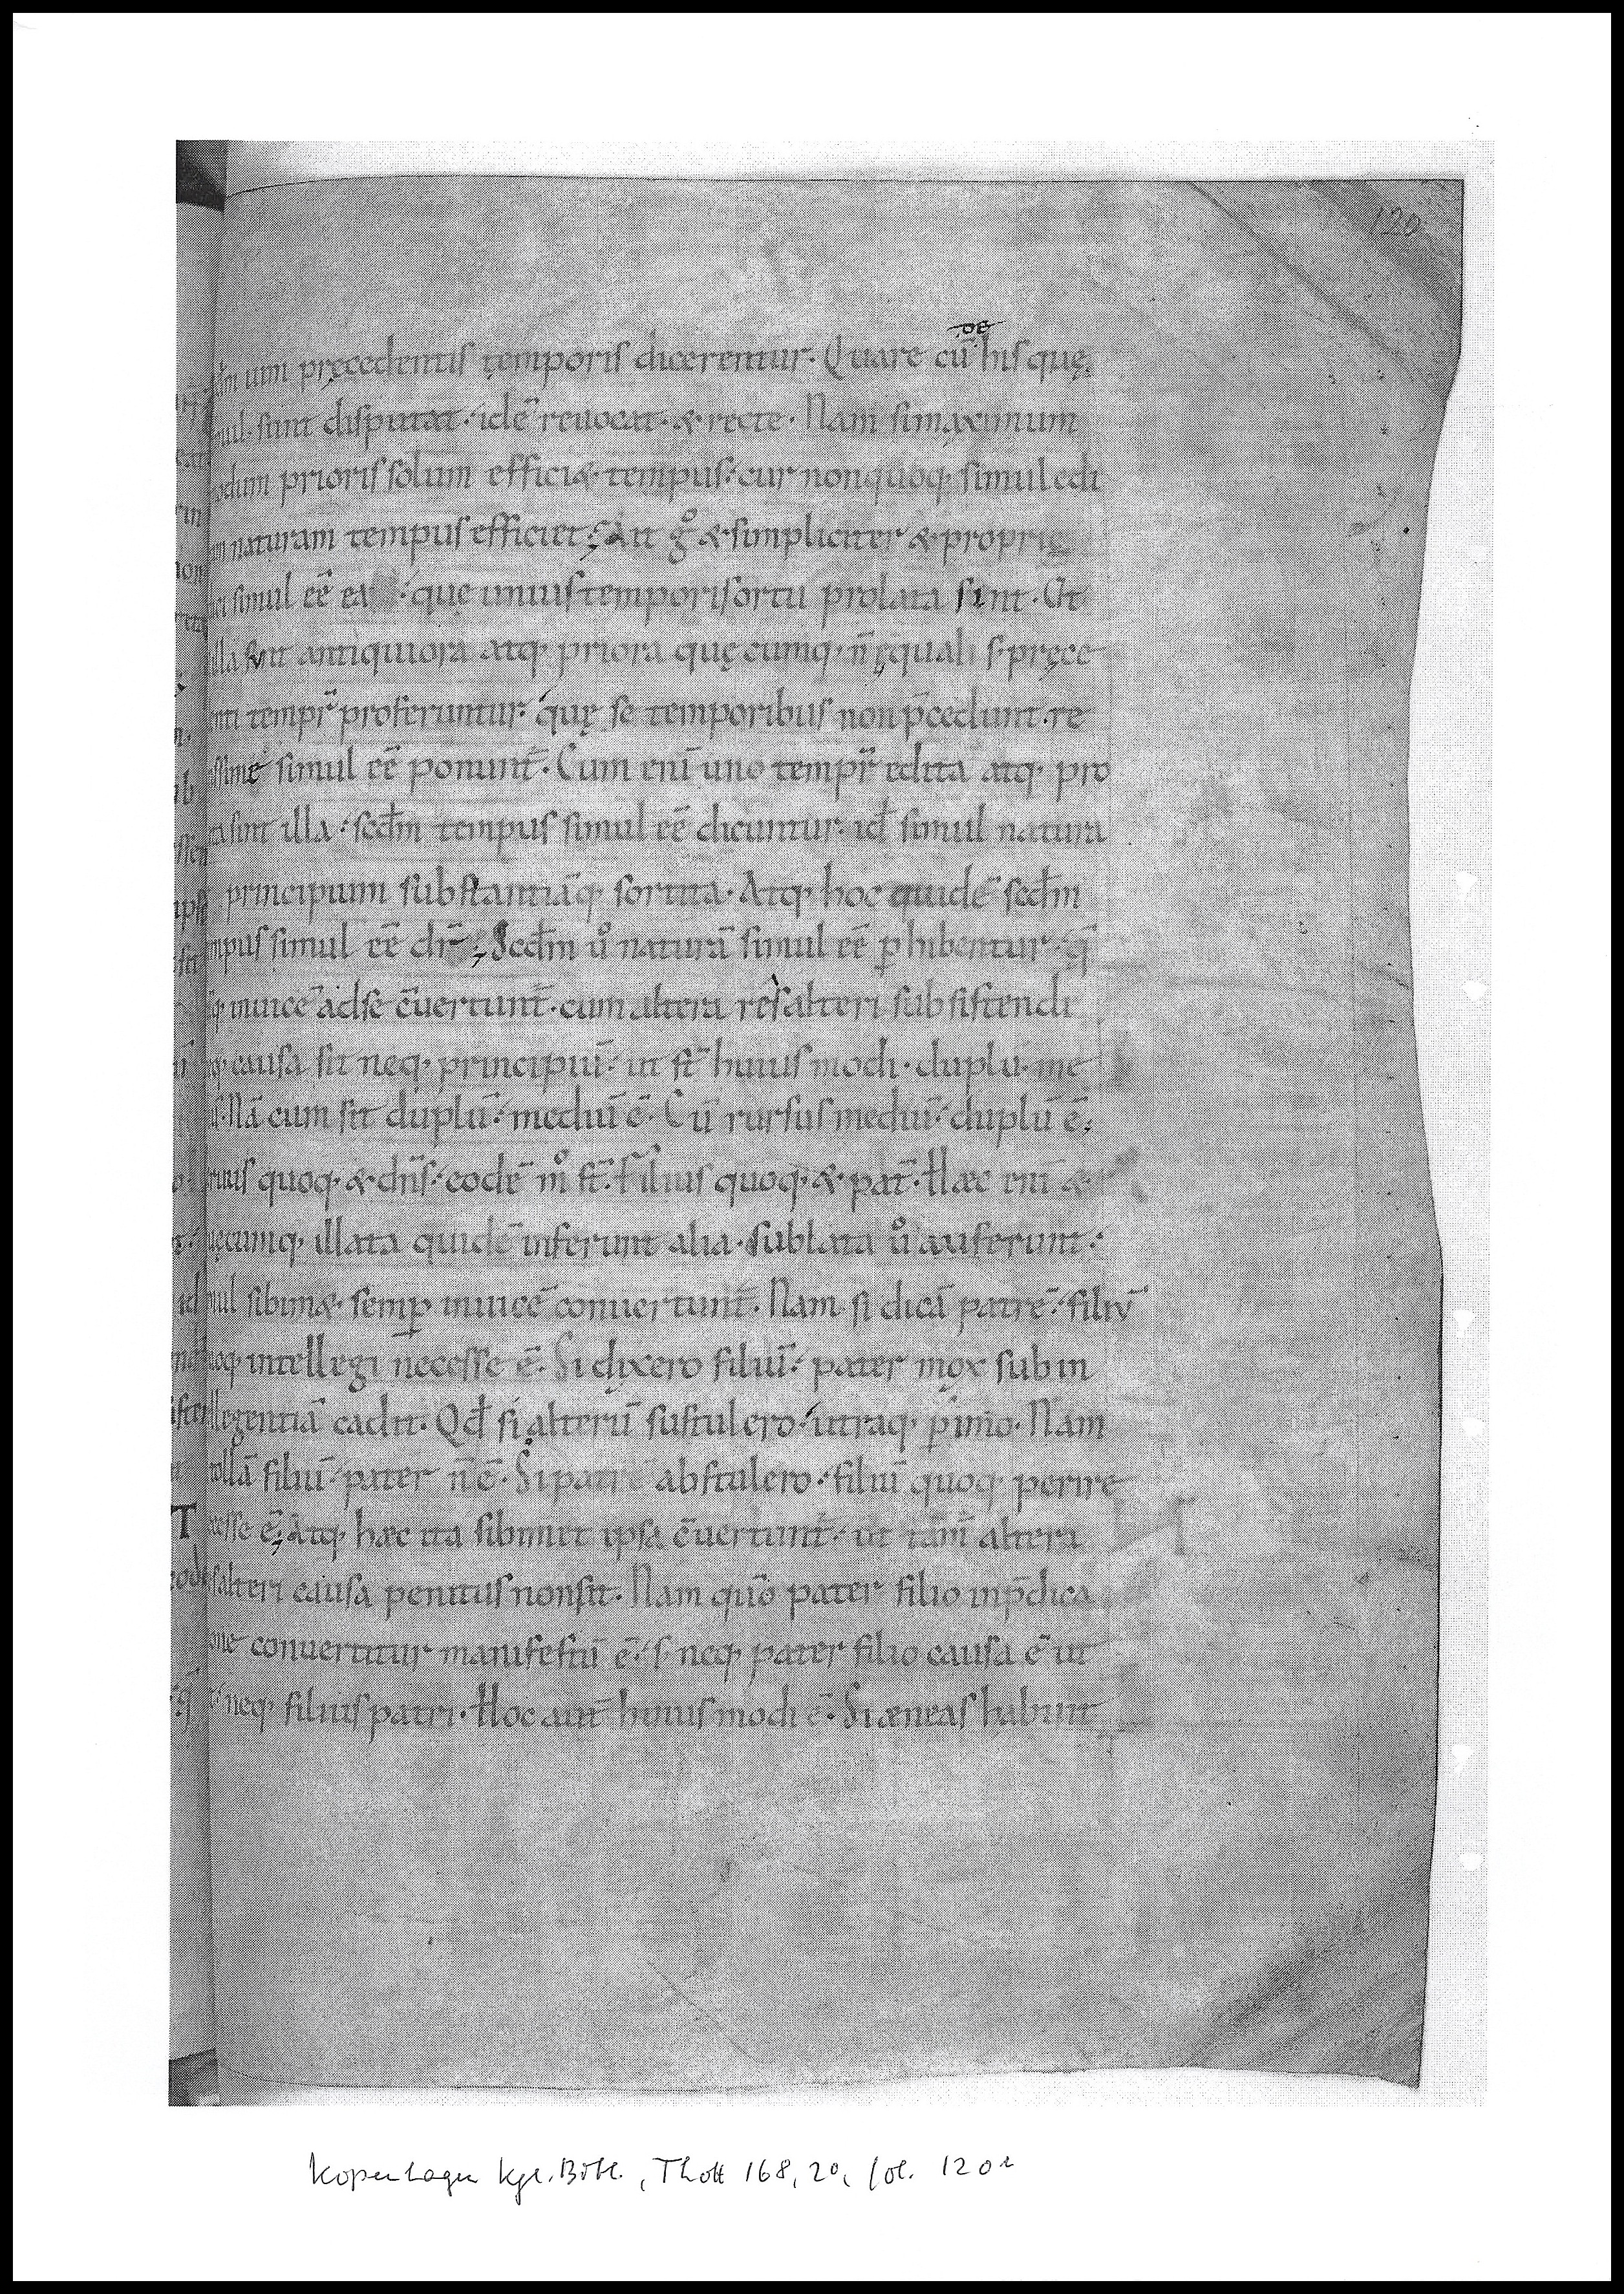 120
dm uim pręcedentis temporis dicerentur. Quare cū de his quę
mul sunt disputat. idē reuocat. & recte. Nam si maximum
odum prioris solum effici&. tempus. cur non quoq. simul edi
naturam tempus efficiet; Ait gͦ & simpliciter & proprie
simul eē ea. quę unius temporis ortu prolata sint. At
illa sunt antiquiora atq. priora quęcumq. n̄ ęquali s. pręce
enti tempr̄ proferuntur. quę se temporibus non p̄cedunt. re
issime simul eē ponunt̄. Cum enī uno tempr̄ edita atq. pro
ta sint illa. scd̄m tempus simul eē dicuntur. id̄ simul natura
principium substantiāq. sortita. Atq. hoc quidē scd̄m
mpus simul eē dr̄; Scd̄m uͦ naturā simul eē ꝑhibentur. q̄
q. inuicē ad se c̄uertunt̄. cum altera res alteri subsistendi
q. causa sit neq. principiū. ut st̄ huius modi. duplū. me
ū. Nā cum sit duplū. mediū ē. Cū rursus mediū. duplū ē;
ruus quoq. & dn̄s. eodē mͦ st̄. Filius quoq. & pat̄. Hæc enī &
uęcumq. illata quidē inferunt alia. sublata uͦ auferunt.
mul sibim&. semꝑ inuicē conuertunt̄. Nam si dicā patrē. filiū
uoq. intellegi necesse ē. Si dixero filiū. pater mox sub in
llegentiā cadit. Qd̄ si alterū sustulero. utraq. ꝑimo. Nam
tollā filiū. pater n̄ ē. Si patrē abstulero. filiū quoq. perire
cesse ē; Atq. hæc ita sibimet ipsa c̄uertunt̄. ut tam̄ altera
s alteri causa penitus non sit. Nam quō pater filio in p̄dica
one conuertitur manifestū ē. s. neq. pater filio causa ē ut
t. neq. filius patri. Hoc aut̄ huius modi ē. Si æneas habuit
Kopenhagen kgl. Bibl., Thott 168, 2°, fol. 120r